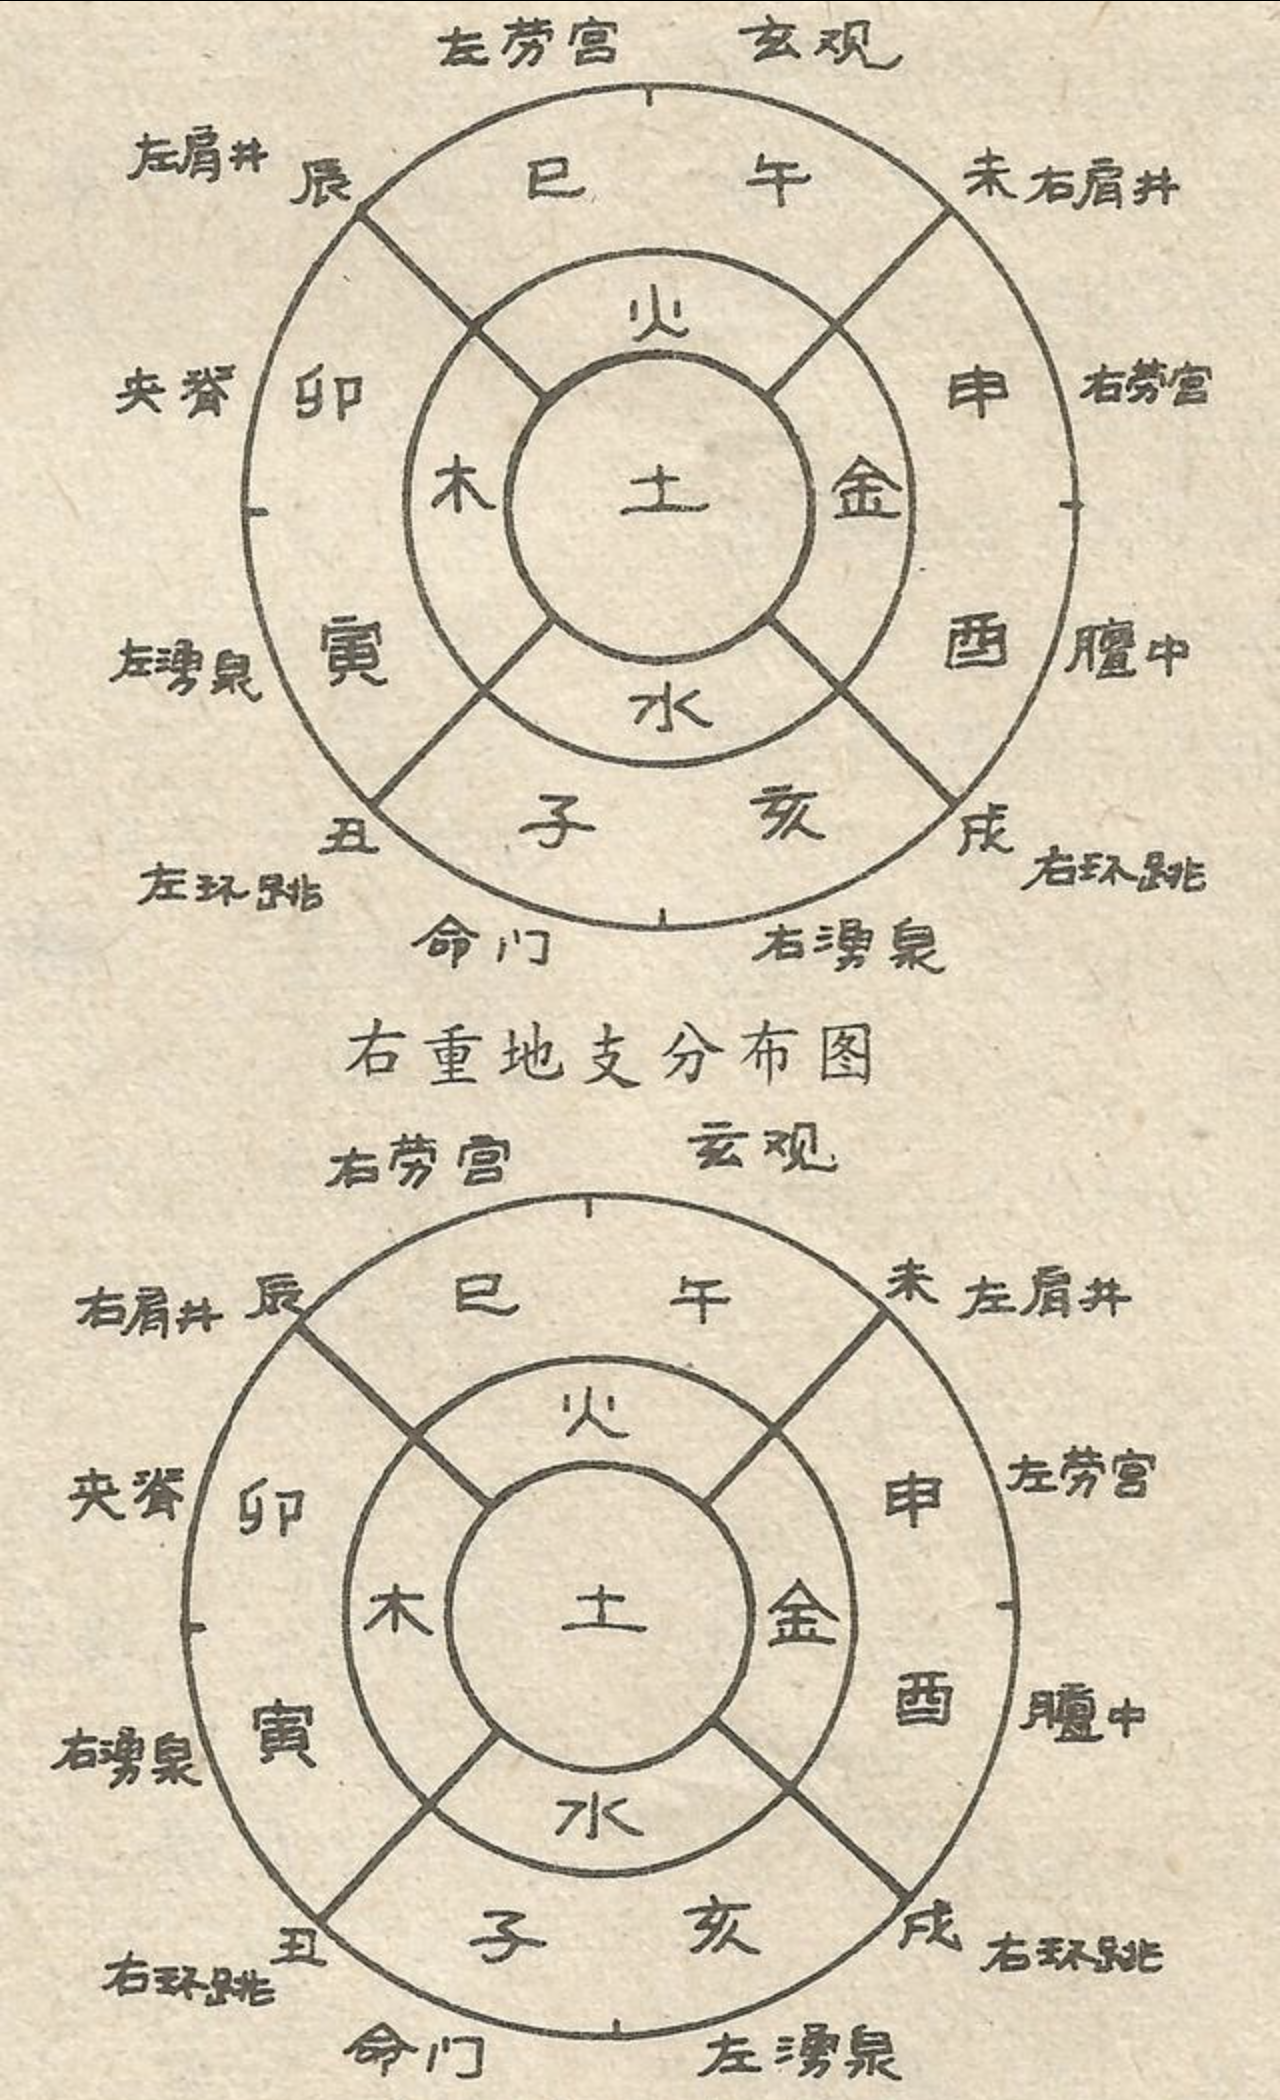 左劳宫 玄观
左肩井 辰 巳 午 未 右肩井
火
夹脊 卯 申 右劳宫
木 土 金
左湧泉 寅 酉 膻中
水
子 亥
丑 戌
左环跳 右环跳
命门 右湧泉
右重地支分布图
右劳宫 玄观
右肩井 辰 巳 午 未 左肩井
火
夹脊 卯 申 左劳宫
木 土 金
右湧泉 寅 酉 膻中
水
子 亥
丑 戌
右环跳 右环跳
命门 左湧泉